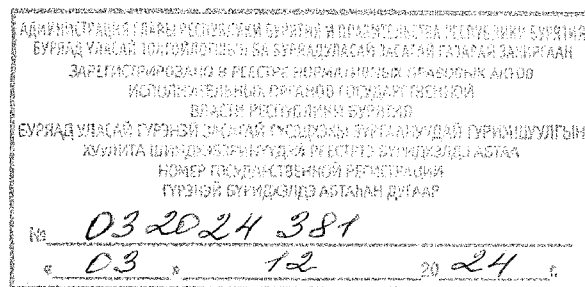 АДМИНИСТРАЦИЯ ГЛАВЫ РЕСПУБЛИКИ БУРЯТИЯ И ПРАВИТЕЛЬСТВА РЕСПУБЛИКИ БУРЯТИЯ
БУРЯАД УЛАСАЙ ТОЛГОЙЛОГШЫН БА БУРЯАД УЛАСАЙ ЗАСАГАЙ ГАЗАРАЙ ЗАХИРГААН
ЗАРЕГИСТРИРОВАНО В РЕЕСТРЕ НОРМАТИВНЫХ ПРАВОВЫХ АКТОВ
ИСПОЛНИТЕЛЬНЫХ ОРГАНОВ ГОСУДАРСТВЕННОЙ
ВЛАСТИ РЕСПУБЛИКИ БУРЯТИЯ
БУРЯАД УЛАСАЙ ГҮРЭНЭЙ ЗАСАГАЙ
РЕЕСТРТЭ БҮРИДХЭЛДЭ АБТАА
НОМЕР ГОСУДАРСТВЕННОЙ РЕГИСТРАЦИИ
ГҮРЭНЭЙ БҮРИДХЭЛДЭ АБТАҺАН ДУГААР
№ 032024 381
« 03 » 12 20 24 г.